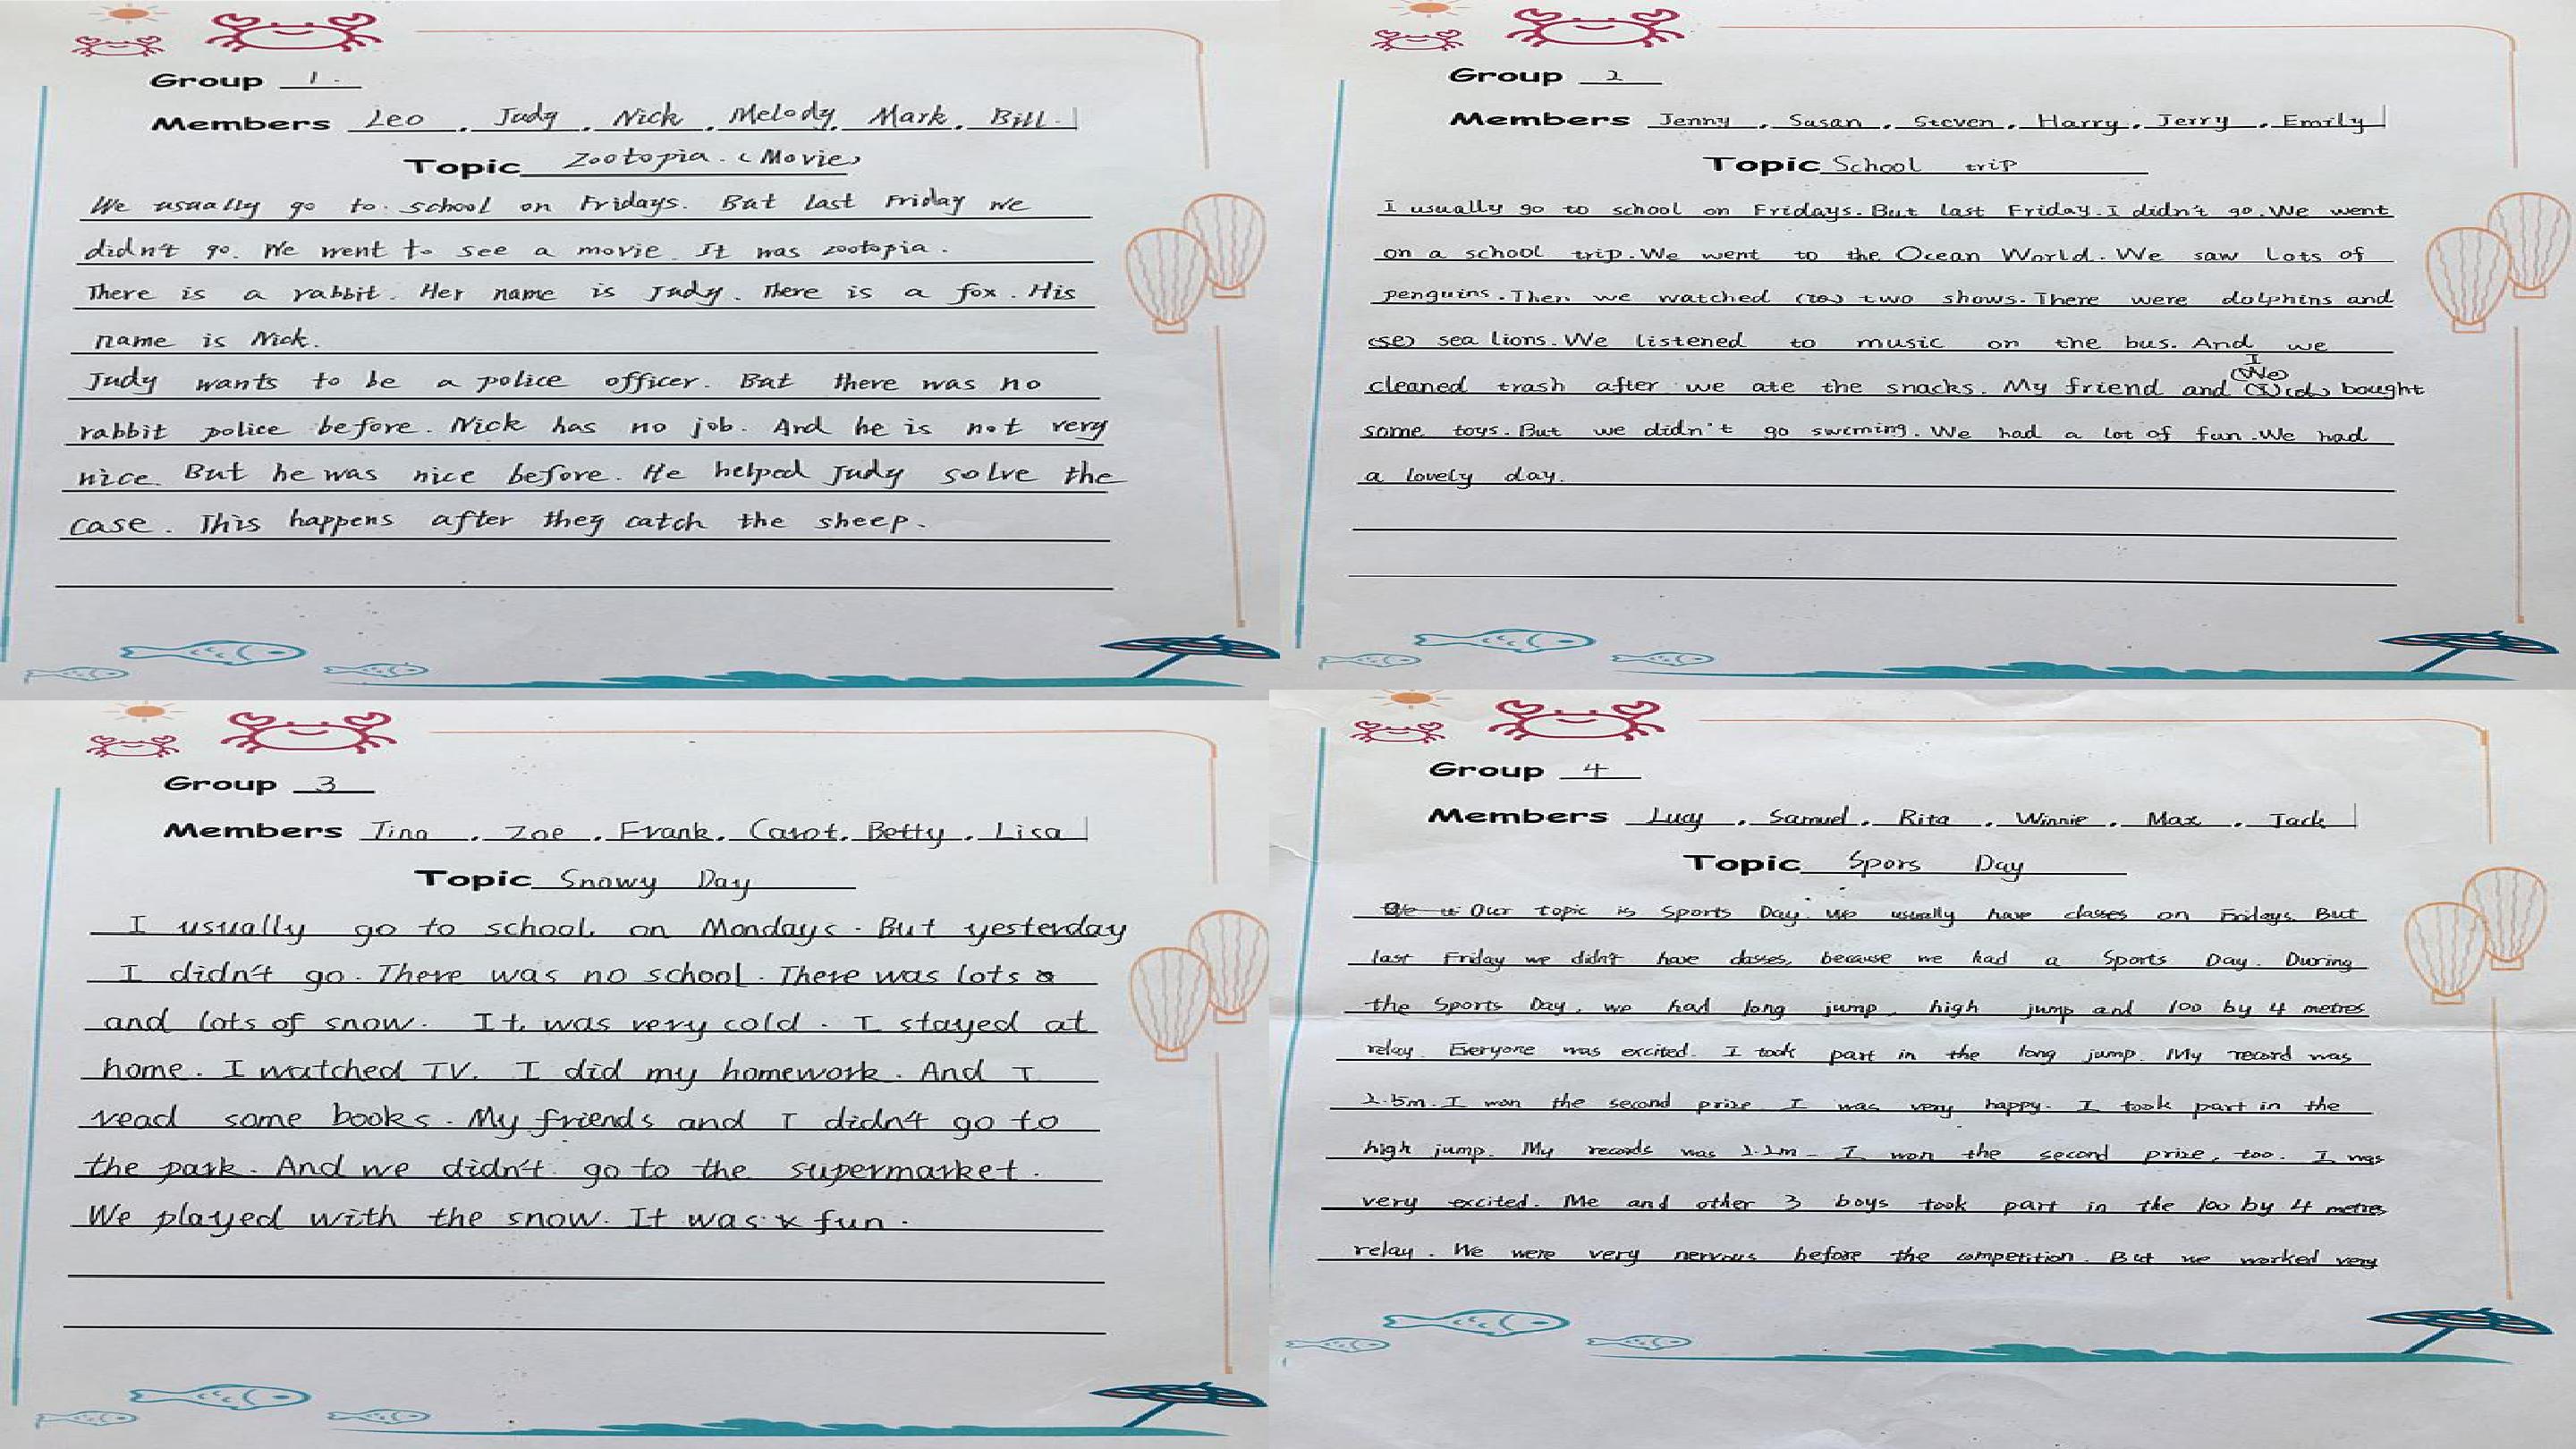 Group 1.
Members Leo, Judy, Nick, Melody, Mark, Bill.
Topic Zootopia. (Movie)
We usually go to school on Fridays. But last Friday we
didn't go. We went to see a movie. It was zootopia.
There is a rabbit. Her name is Judy. There is a fox. His
name is Nick.
Judy wants to be a police officer. But there was no
rabbit police before. Nick has no job. And he is not very
nice. But he was nice before. He helped Judy solve the
case. This happens after they catch the sheep.
Group 2
Members Jenny, Susan, Steven, Harry, Jerry, Emily
Topic School trip
I usually go to school on Fridays. But last Friday. I didn't go. We went
on a school trip. We went to the Ocean World. We saw lots of
penguins. Then we watched (to) two shows. There were dolphins and
(se) sea lions. We listened to music on the bus. And we
I
(We)
cleaned trash after we ate the snacks. My friend and (I) bought
some toys. But we didn't go swiming. We had a lot of fun. We had
a lovely day.
Group 3
Members Tina, Zoe, Frank, Carot, Betty, Lisa
Topic Snowy Day
I usually go to school on Mondays. But yesterday
I didn't go. There was no school. There was lots
and lots of snow. It was very cold. I stayed at
home. I watched TV. I did my homework. And I
read some books. My friends and I didn't go to
the park. And we didn't go to the supermarket.
We played with the snow. It was fun.
Group 4
Members Lucy, Samuel, Rita, Winnie, Max, Jack
Topic Spors Day
Our topic is Sports Day. We usually have classes on Fridays. But
last Friday we didn't have classes, because we had a Sports Day. During
the Sports Day, we had long jump, high jump and 100 by 4 metres
relay. Everyone was excited. I took part in the long jump. My record was
2.5m. I won the second prize. I was very happy. I took part in the
high jump. My records was 1.1m. I won the second prize, too. I was
very excited. Me and other 3 boys took part in the 100 by 4 metres
relay. We were very nervous before the competition. But we worked very